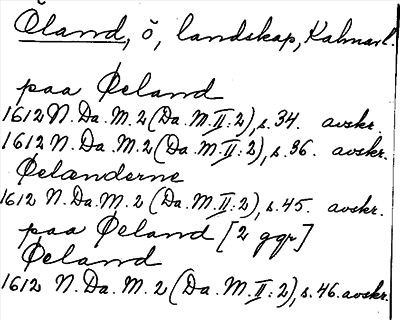 Öland, ö, landskap, Kalmar l.
paa Øeland
1612 N. Da. M. 2 (Da. M. II: 2), s. 34. avskr.
1612 N. Da. M. 2 (Da. M. II: 2), s. 36. avskr.
Øelænderne
1612 N. Da. M. 2 (Da. M. II: 2), s. 45. avskr.
paa Øeland [2 ggr]
Øeland
1612 N. Da. M. 2 (Da. M. II: 2), s. 46. avskr.